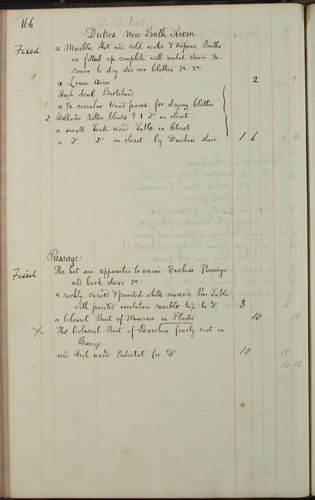 166
Dukes New Bath Room
Fixed a Marble Hot and cold water & Vapour Baths
as fitted up complete with metal steam
cover to dry and air clothes &c &c
a Linen Airer 2 2
High deal Bedstead
a ½ circular Wood frame for drying Clothes
2 Holland Roller blinds & 1 Do in closet
a small Wood Table in Closet
a Do Do in closet by Duchess stair 1 6 1 0
Passage
Fixed The hot air apparatus to warm Duchess Passage
and back stairs &c
a richly carved & painted white massive Pier Table
with painted imitation marble top to Do 3 3
a Colossal Bust of Minerva in Plaster 10 10
X The Colossal Bust of Bacchus finely cast in
Bronze
and High wood Pedestal for Do 10 10
14 18